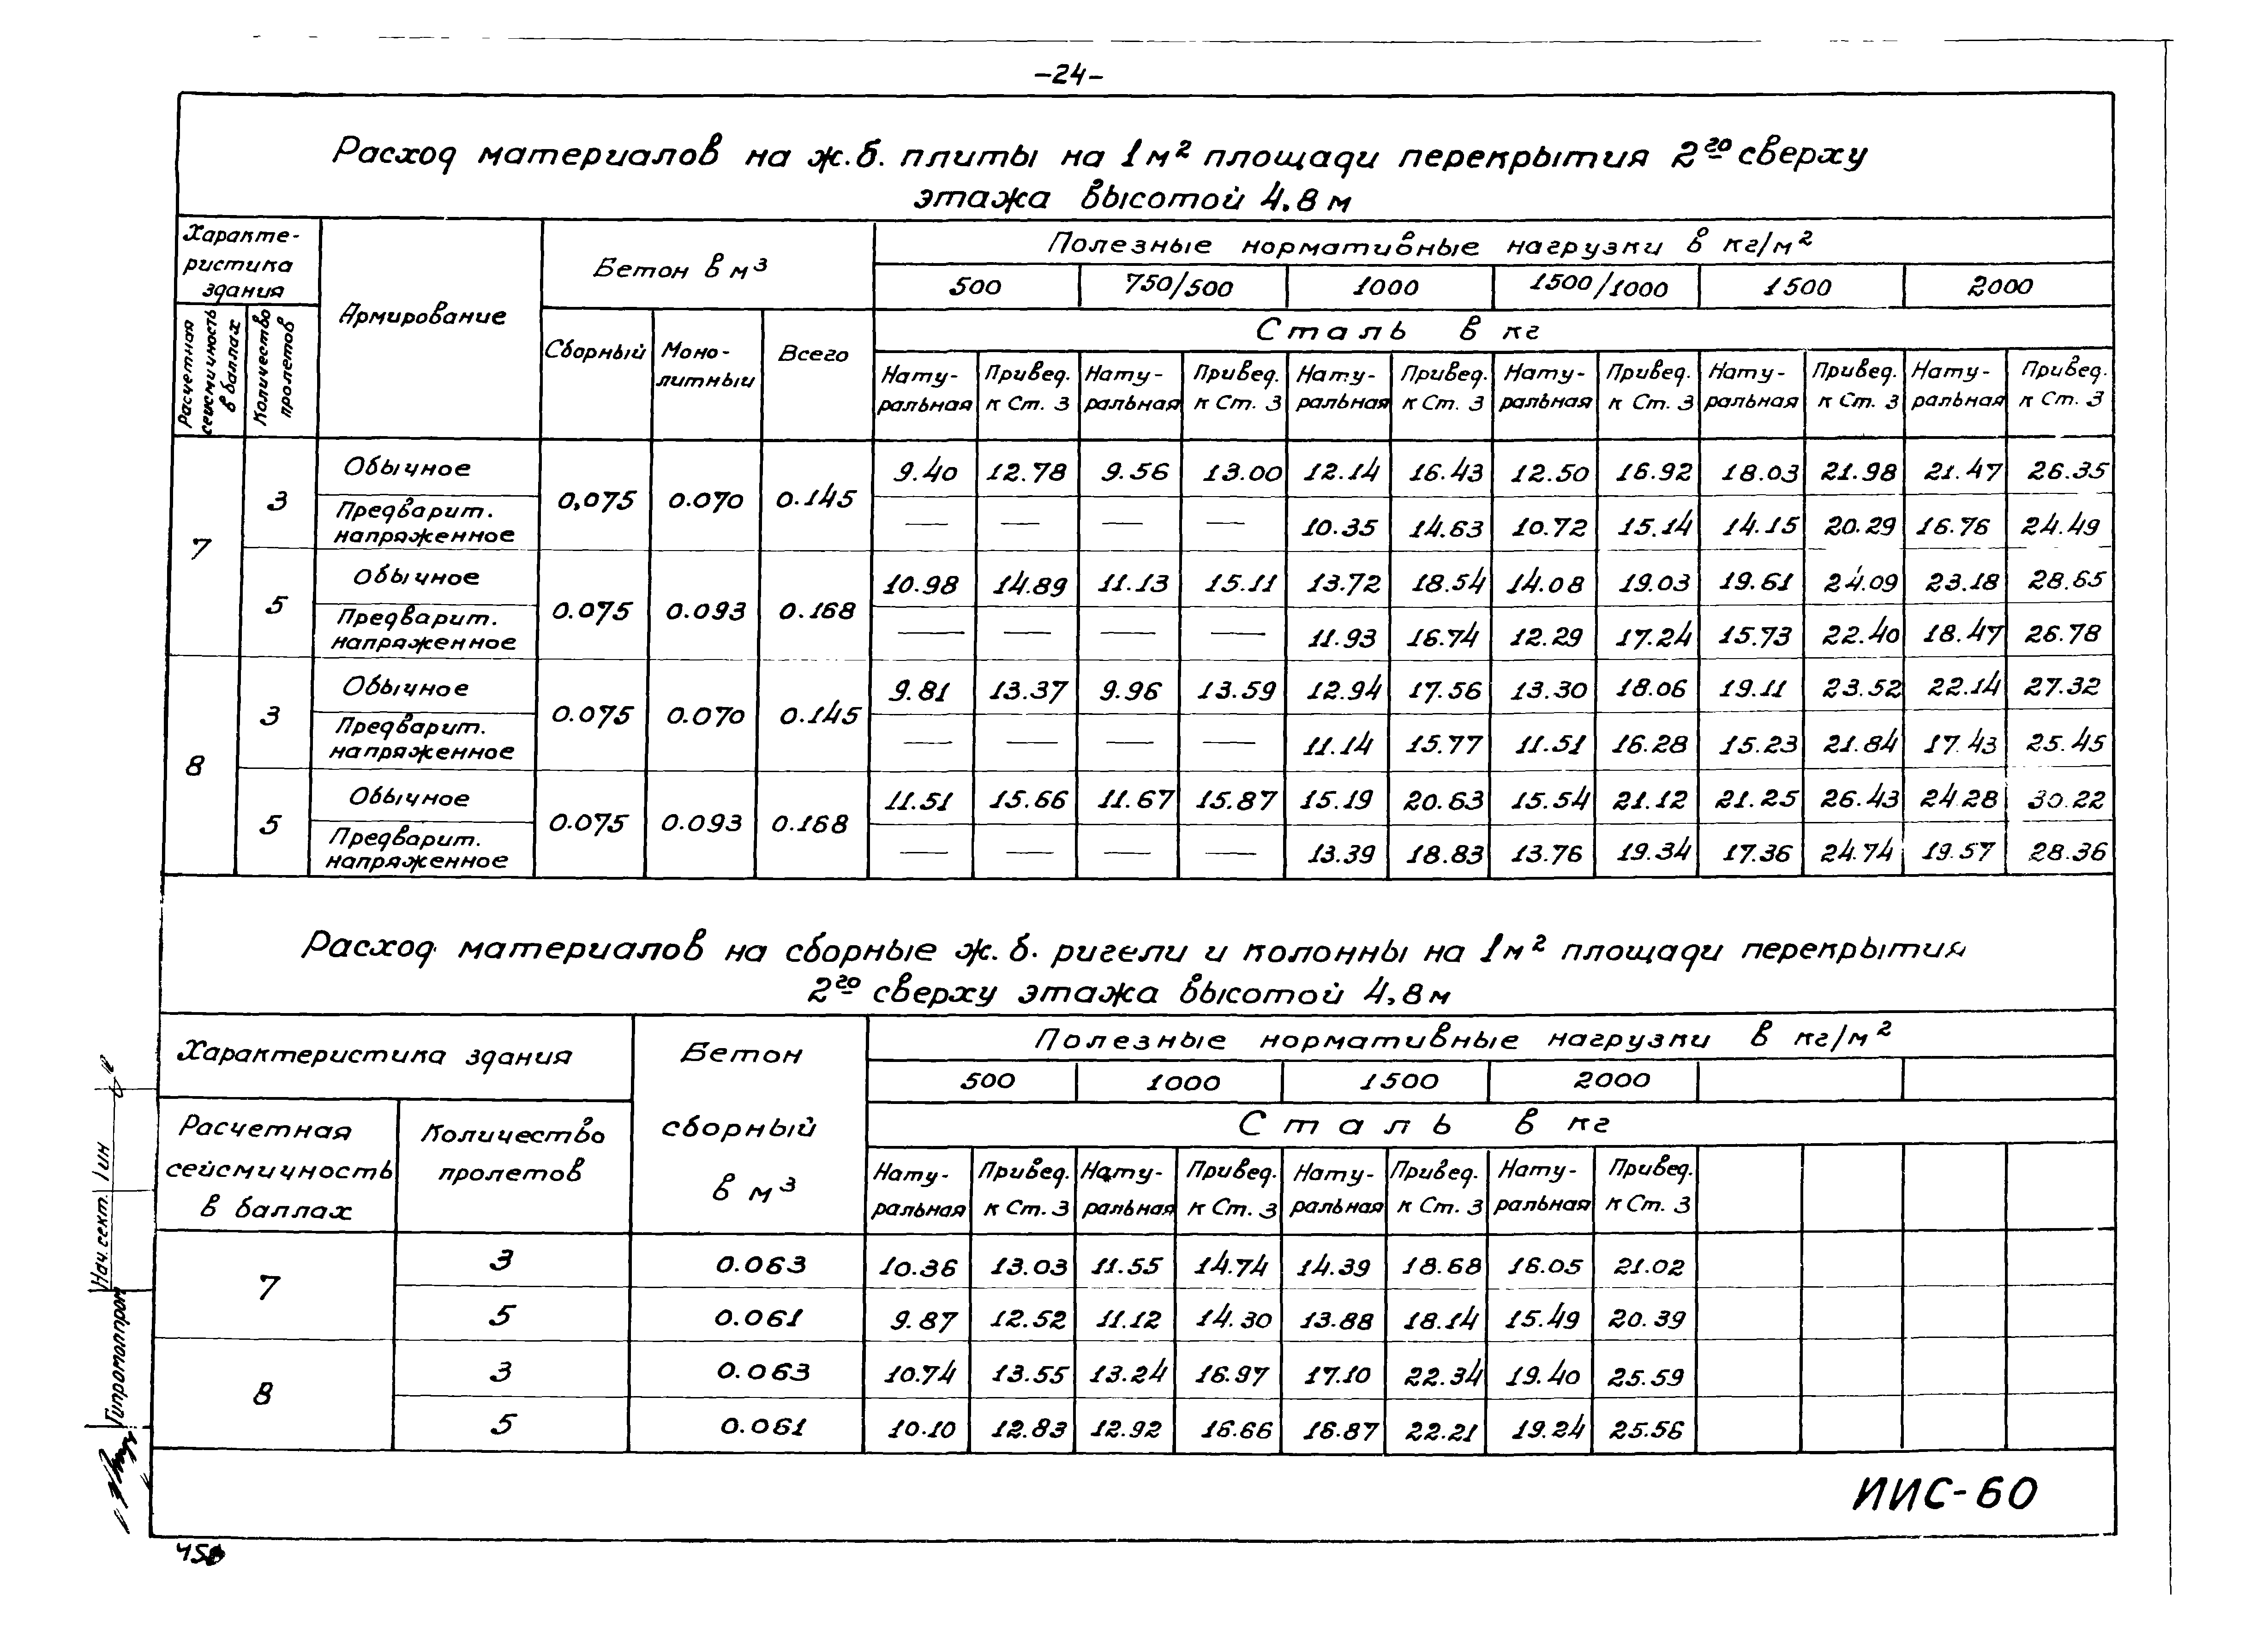 -24-
Расход материалов на ж.б. плиты на 1 м² площади перекрытия 2го сверху
этажа высотой 4,8 м
Характе-
ристика
здания
Расчетная
сейсмичность
в баллах
Количество
пролетов
Армирование
Бетон в м³
Сборный
Моно-
литный
Всего
Полезные нормативные нагрузки в кг/м²
500 750/500 1000 1500/1000 1500 2000
Сталь в кг
Нату- Привед. Нату- Привед. Нату- Привед. Нату- Привед. Нату- Привед. Нату- Привед.
ральная к Ст. 3 ральная к Ст. 3 ральная к Ст. 3 ральная к Ст. 3 ральная к Ст. 3 ральная к Ст. 3
7
3 0,075 0.070 0.145
Обычное 9.40 12.78 9.56 13.00 12.14 16.43 12.50 16.92 18.03 21.98 21.47 26.35
Предварит.
напряженное — — — — 10.35 14.63 10.72 15.14 14.15 20.29 16.76 24.49
5 0.075 0.093 0.168
Обычное 10.98 14.89 11.13 15.11 13.72 18.54 14.08 19.03 19.61 24.09 23.18 28.65
Предварит.
напряженное — — — — 11.93 16.74 12.29 17.24 15.73 22.40 18.47 26.78
8
3 0.075 0.070 0.145
Обычное 9.81 13.37 9.96 13.59 12.94 17.56 13.30 18.06 19.11 23.52 22.14 27.32
Предварит.
напряженное — — — — 11.14 15.77 11.51 16.28 15.23 21.84 17.43 25.45
5 0.075 0.093 0.168
Обычное 11.51 15.66 11.67 15.87 15.19 20.63 15.54 21.12 21.25 26.43 24.28 30.22
Предварит.
напряженное — — — — 13.39 18.83 13.76 19.34 17.36 24.74 19.57 28.36
Расход материалов на сборные ж.б. ригели и колонны на 1 м² площади перекрытия
2го сверху этажа высотой 4,8 м
Характеристика здания
Расчетная
сейсмичность
в баллах
Количество
пролетов
Бетон
сборный
в м³
Полезные нормативные нагрузки в кг/м²
500 1000 1500 2000
Сталь в кг
Нату- Привед. Нату- Привед. Нату- Привед. Нату- Привед.
ральная к Ст. 3 ральная к Ст. 3 ральная к Ст. 3 ральная к Ст. 3
7
3 0.063 10.36 13.03 11.55 14.74 14.39 18.68 16.05 21.02
5 0.061 9.87 12.52 11.12 14.30 13.88 18.14 15.49 20.39
8
3 0.063 10.74 13.55 13.24 16.97 17.10 22.34 19.40 25.59
5 0.061 10.10 12.83 12.92 16.66 16.87 22.21 19.24 25.56
ИИС-60
Нач. сект.